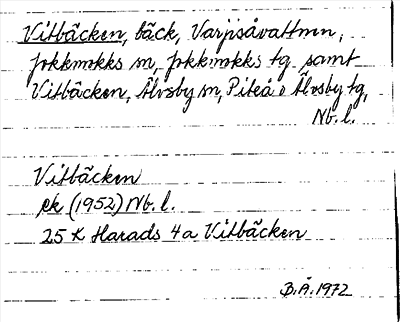 Vitbäcken, bäck, Varjisåvattnen,
Jokkmokks sn, Jokkmokks tg samt
Vitbäcken, Älvsby sn, Piteå o Älvsby tg,
Nb. l.
Vitbäcken
ek (1952) Nb. l.
25 K Harads 4a Vitbäcken
B.Å. 1972